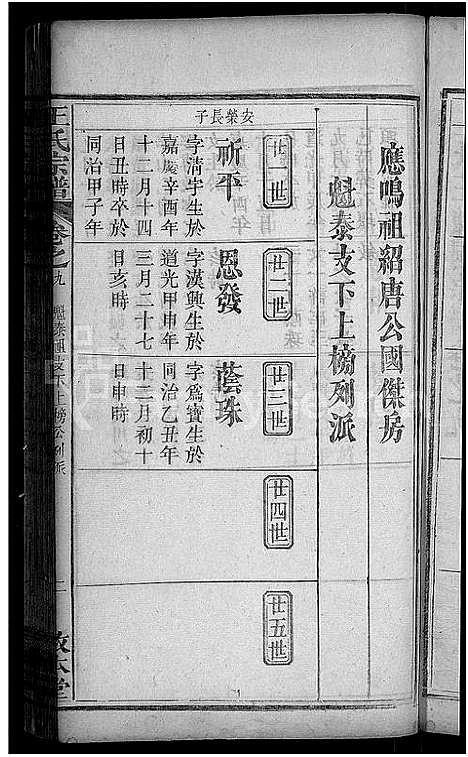 應鳴祖紹唐公國傑房
魁泰支下上榜列派
廿一世
廿二世
廿三世
廿四世
廿五世
安榮長子
祈平
字清字生於
嘉慶辛酉年
十二月十四
日丑時卒於
同治甲子年
恩發
字漢興生於
道光甲申年
三月二十七
日亥時
蔭珠
字爲寳生於
同治乙丑年
十二月初十
日申時
王氏宗譜
卷之九
魁泰支下上榜公列派
二
敦本堂